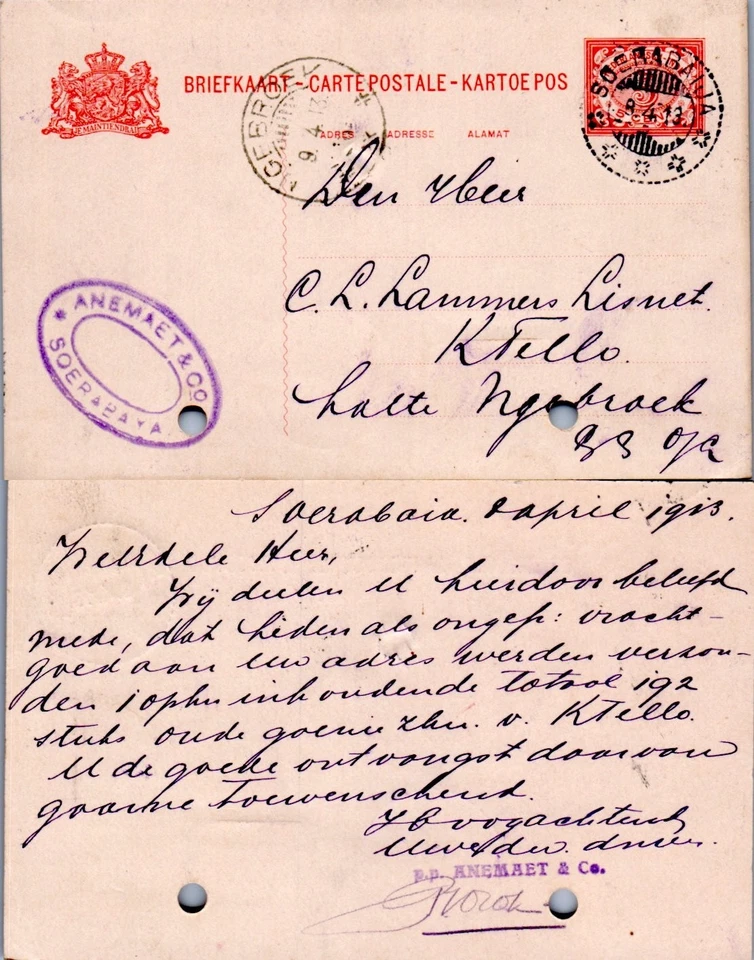 BRIEFKAART - CARTE POSTALE - KARTOE POS
JE MAINTIENDRAI
ADRES ADRESSE ALAMAT
SOERABAIJA
8.4.13
NGEBROEK
9.4.13
Den Heer
C. L. Lammers Lisnet.
K Tello.
halte Ngebroek
S/S O/L
* ANEMAET & Co
SOERABAYA
Soerabaia. 8 april 1913.
WelEdele Heer,
Wij deelen U hierdoor beleefd
mede, dat heden als ongefr: vracht-
goed aan Uw adres werden verzon-
den 1 ophn inhoudende totaal 192
stuks oude goenie zkn. v. K Tello.
U de goede ontvangst daarvan
gaarne toewenschend.
Hoogachtend
UwEdw. dnren.
p.p. ANEMAET & Co.